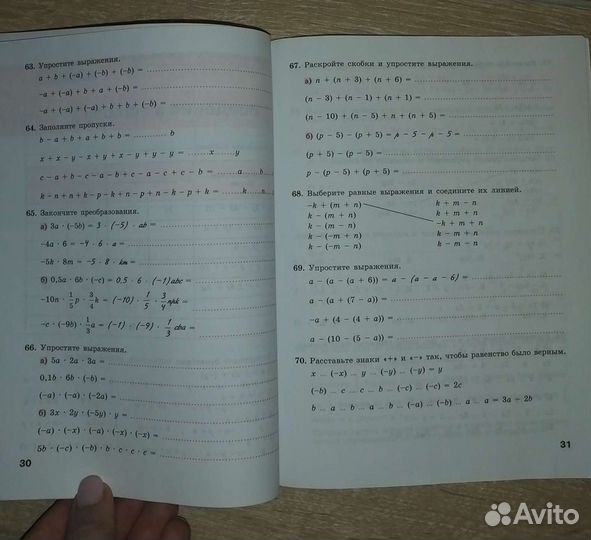 63. Упростите выражения.
a + b + (−a) + (−b) + (−b) =
−a + (−a) + b + a + (−b) =
−a + (−a) + (−a) + b + b + (−b) =
64. Заполните пропуски.
b − a + b + a + b + b = b
x + x − y − x + y + x − y + y − y = x y
c − a + b − c − a − b + c − a − c + c − b = a b
k − n + n + k − p − k + n − p + n − k − p + k = k n
65. Закончите преобразования.
а) 3a · (−5b) = 3 · (−5) · ab =
−4a · 6 = −4 · 6 · a =
−5k · 8m = −5 · 8 · km =
б) 0,5a · 6b · (−c) = 0,5 · 6 · (−1) abc =
−10n · 1/5 p · 3/4 k = (−10) · 1/5 · 3/4 npk =
−c · (−9b) · 1/3 a = (−1) · (−9) · 1/3 cba =
66. Упростите выражения.
а) 5a · 2a · 3a =
0,1b · 6b · (−b) =
(−a) · (−a) · (−2a) =
б) 3x · 2y · (−5y) · y =
(−a) · (−x) · (−a) · (−x) · (−x) =
5b · (−c) · (−b) · b · c · c · c =
30
67. Раскройте скобки и упростите выражения.
а) n + (n + 3) + (n + 6) =
(n − 3) + (n − 1) + (n + 1) =
(n − 10) + (n − 5) + n + (n + 5) =
б) (p − 5) − (p + 5) = p − 5 − p − 5 =
(p + 5) − (p − 5) =
p − (p − 5) + (p + 5) =
68. Выберите равные выражения и соедините их линией.
−k + (m + n) k + m − n
k − (m + n) k + m + n
k − (m − n) −k + m + n
k − (−m + n) k − m + n
k − (−m − n) k − m − n
69. Упростите выражения.
a − (a − (a + 6)) = a − (a − a − 6) =
a − (a + (7 − a)) =
−a + (4 − (4 + a)) =
a − (10 − (5 − a)) =
70. Расставьте знаки «+» и «−» так, чтобы равенство было верным.
x ... (−x) ... y ... (−y) ... (−y) = y
(−b) ... c ... c ... b ... (−c) ... (−c) = 2c
b ... a ... b ... a ... b ... (−a) ... (−b) ... a ... a = 3a − 2b
31
Avito